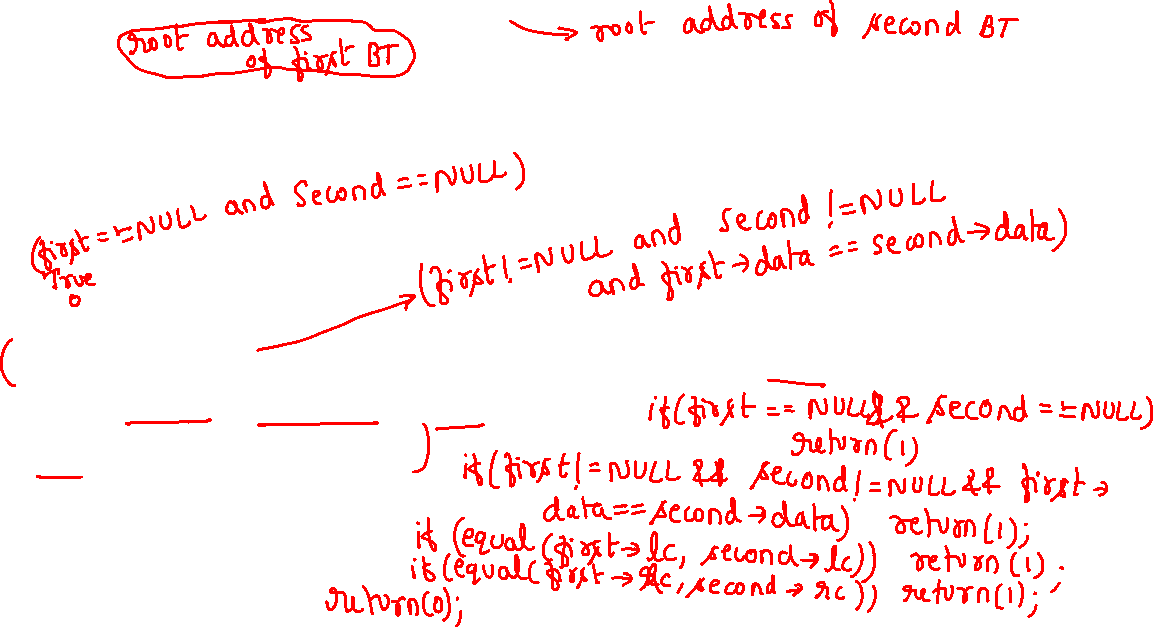 root address
of first BT
root address of second BT
(first==NULL and Second ==NULL)
True
0
(first!=NULL and second !=NULL
and first→data == second→data)
if(first == NULL && second ==NULL)
return(1)
if(first!=NULL && second!=NULL && first→
data==second→data) return(1);
if (equal(first→lc, second→lc)) return(1);
if(equal(first→rc, second→rc)) return(1);
return(0);